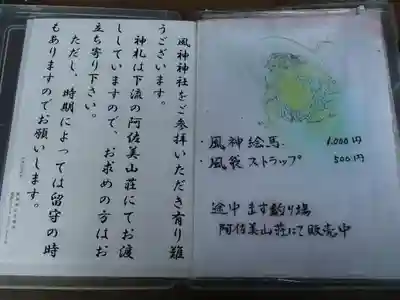 風神神社をご参拝いただき有り難
うございます。
神札は下流の阿佐美山荘にてお渡
ししていますので、お求めの方はお
立ち寄り下さい。
ただし、時期によっては留守の時
もありますのでお願いします。
・風神絵馬 1,000円
・風袋ストラップ 500円
途中 ます釣り場
阿佐美山荘にて販売中